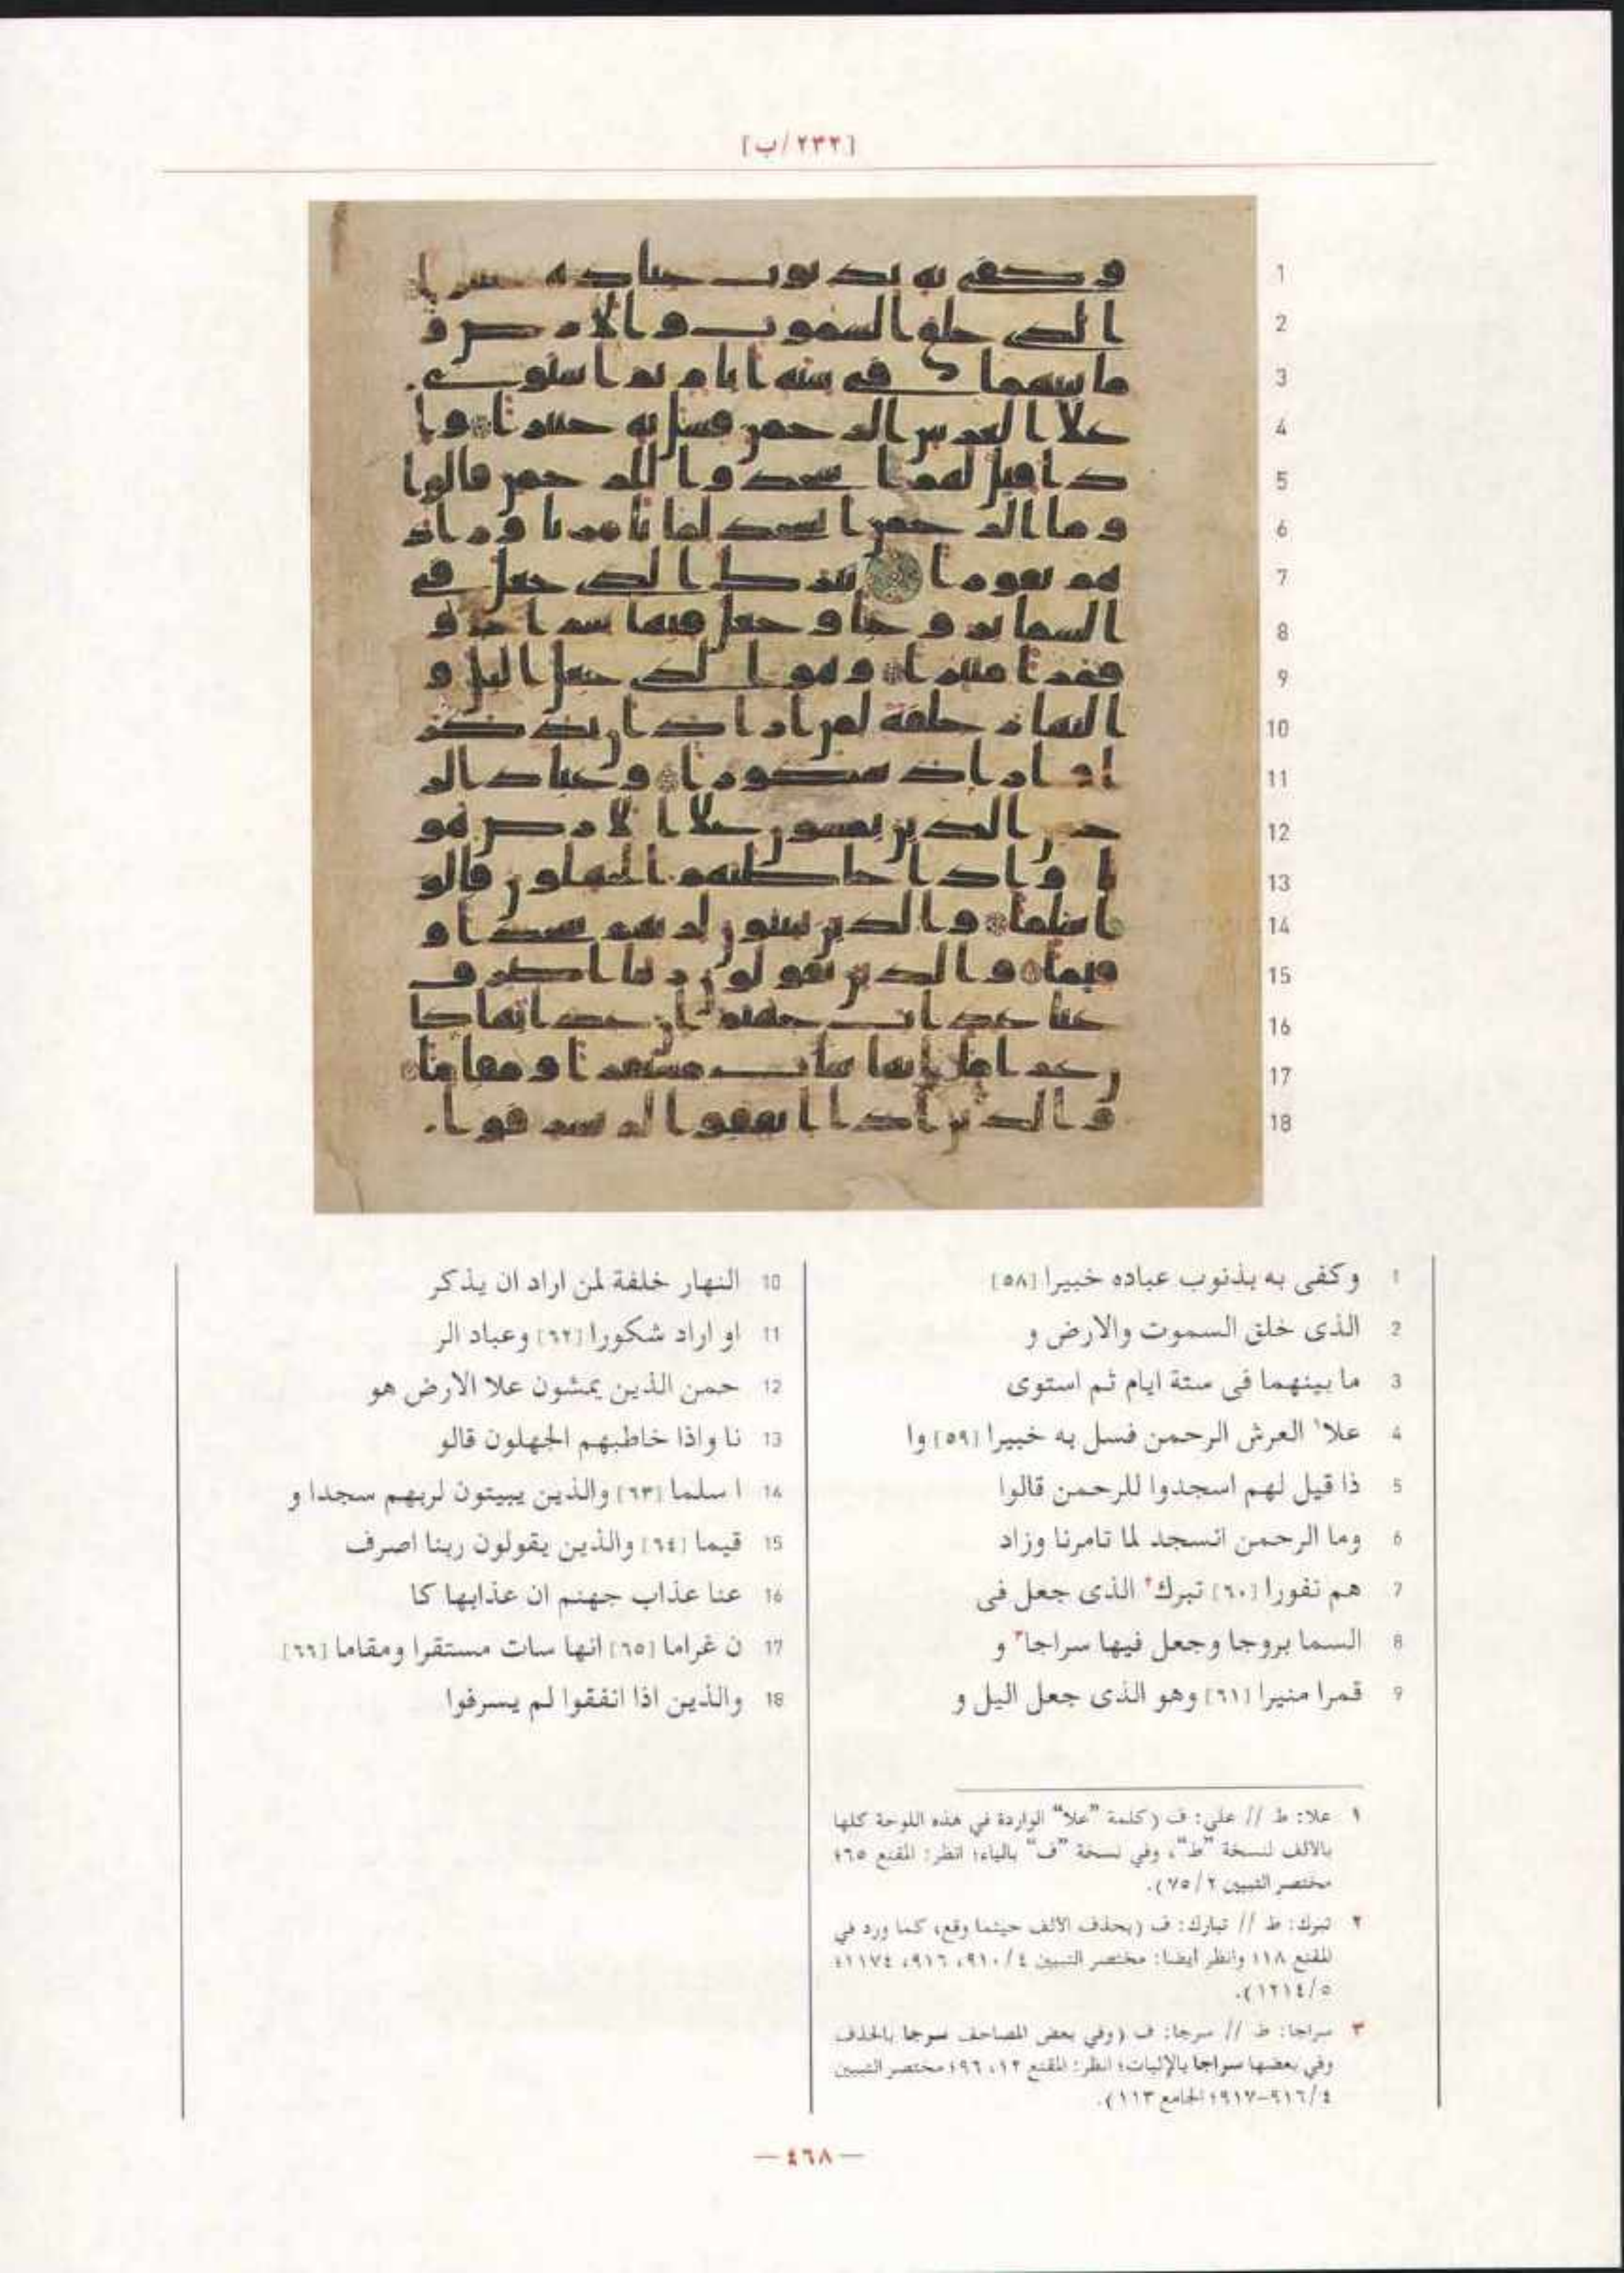 [٢٣٢/ب]
1 وكفى به بذنوب عباده خبيرا [٥٨]
2 الذى خلق السموت والارض و
3 ما بينهما فى ستة ايام ثم استوى
4 علا١ العرش الرحمن فسل به خبيرا [٥٩] وا
5 ذا قيل لهم اسجدوا للرحمن قالوا
6 وما الرحمن انسجد لما تامرنا وزاد
7 هم نفورا [٦٠] تبرك٢ الذى جعل فى
8 السما بروجا وجعل فيها سراجا٣ و
9 قمرا منيرا [٦١] وهو الذى جعل اليل و
10 النهار خلفة لمن اراد ان يذكر
11 او اراد شكورا [٦٢] وعباد الر
12 حمن الذين يمشون علا الارض هو
13 نا واذا خاطبهم الجهلون قالو
14 ا سلما [٦٣] والذين يبيتون لربهم سجدا و
15 قيما [٦٤] والذين يقولون ربنا اصرف
16 عنا عذاب جهنم ان عذابها كا
17 ن غراما [٦٥] انها سات مستقرا ومقاما [٦٦]
18 والذين اذا انفقوا لم يسرفوا
١ علا: ط // على: ف (كلمة "علا" الواردة في هذه اللوحة كلها
بالألف لنسخة "ط"، وفي نسخة "ف" بالياء؛ انظر: المقنع ٦٥؛
مختصر التبيين ٧٥/٢).
٢ تبرك: ط // تبارك: ف (بحذف الألف حيثما وقع، كما ورد في
المقنع ١٨؛ وانظر أيضا: مختصر التبيين ٩١٠/٤، ٩١٦، ١١٧٤؛
١٢١٤/٥).
٣ سراجا: ط // سرجا: ف (وفي بعض المصاحف سرجا بالحذف
وفي بعضها سراجا بالإثبات؛ انظر: المقنع ١٢، ٩٦؛ مختصر التبيين
٩١٦/٤-٩١٧؛ الجامع ١١٣).
— ٤٦٨ —